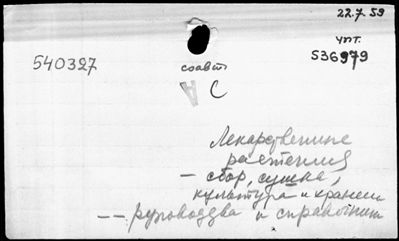 22.7.59
чит.
540327
536979
соавт
С
Лекарственные
растения
- сбор, сушка,
культура и хранен
-- руководства и справочники